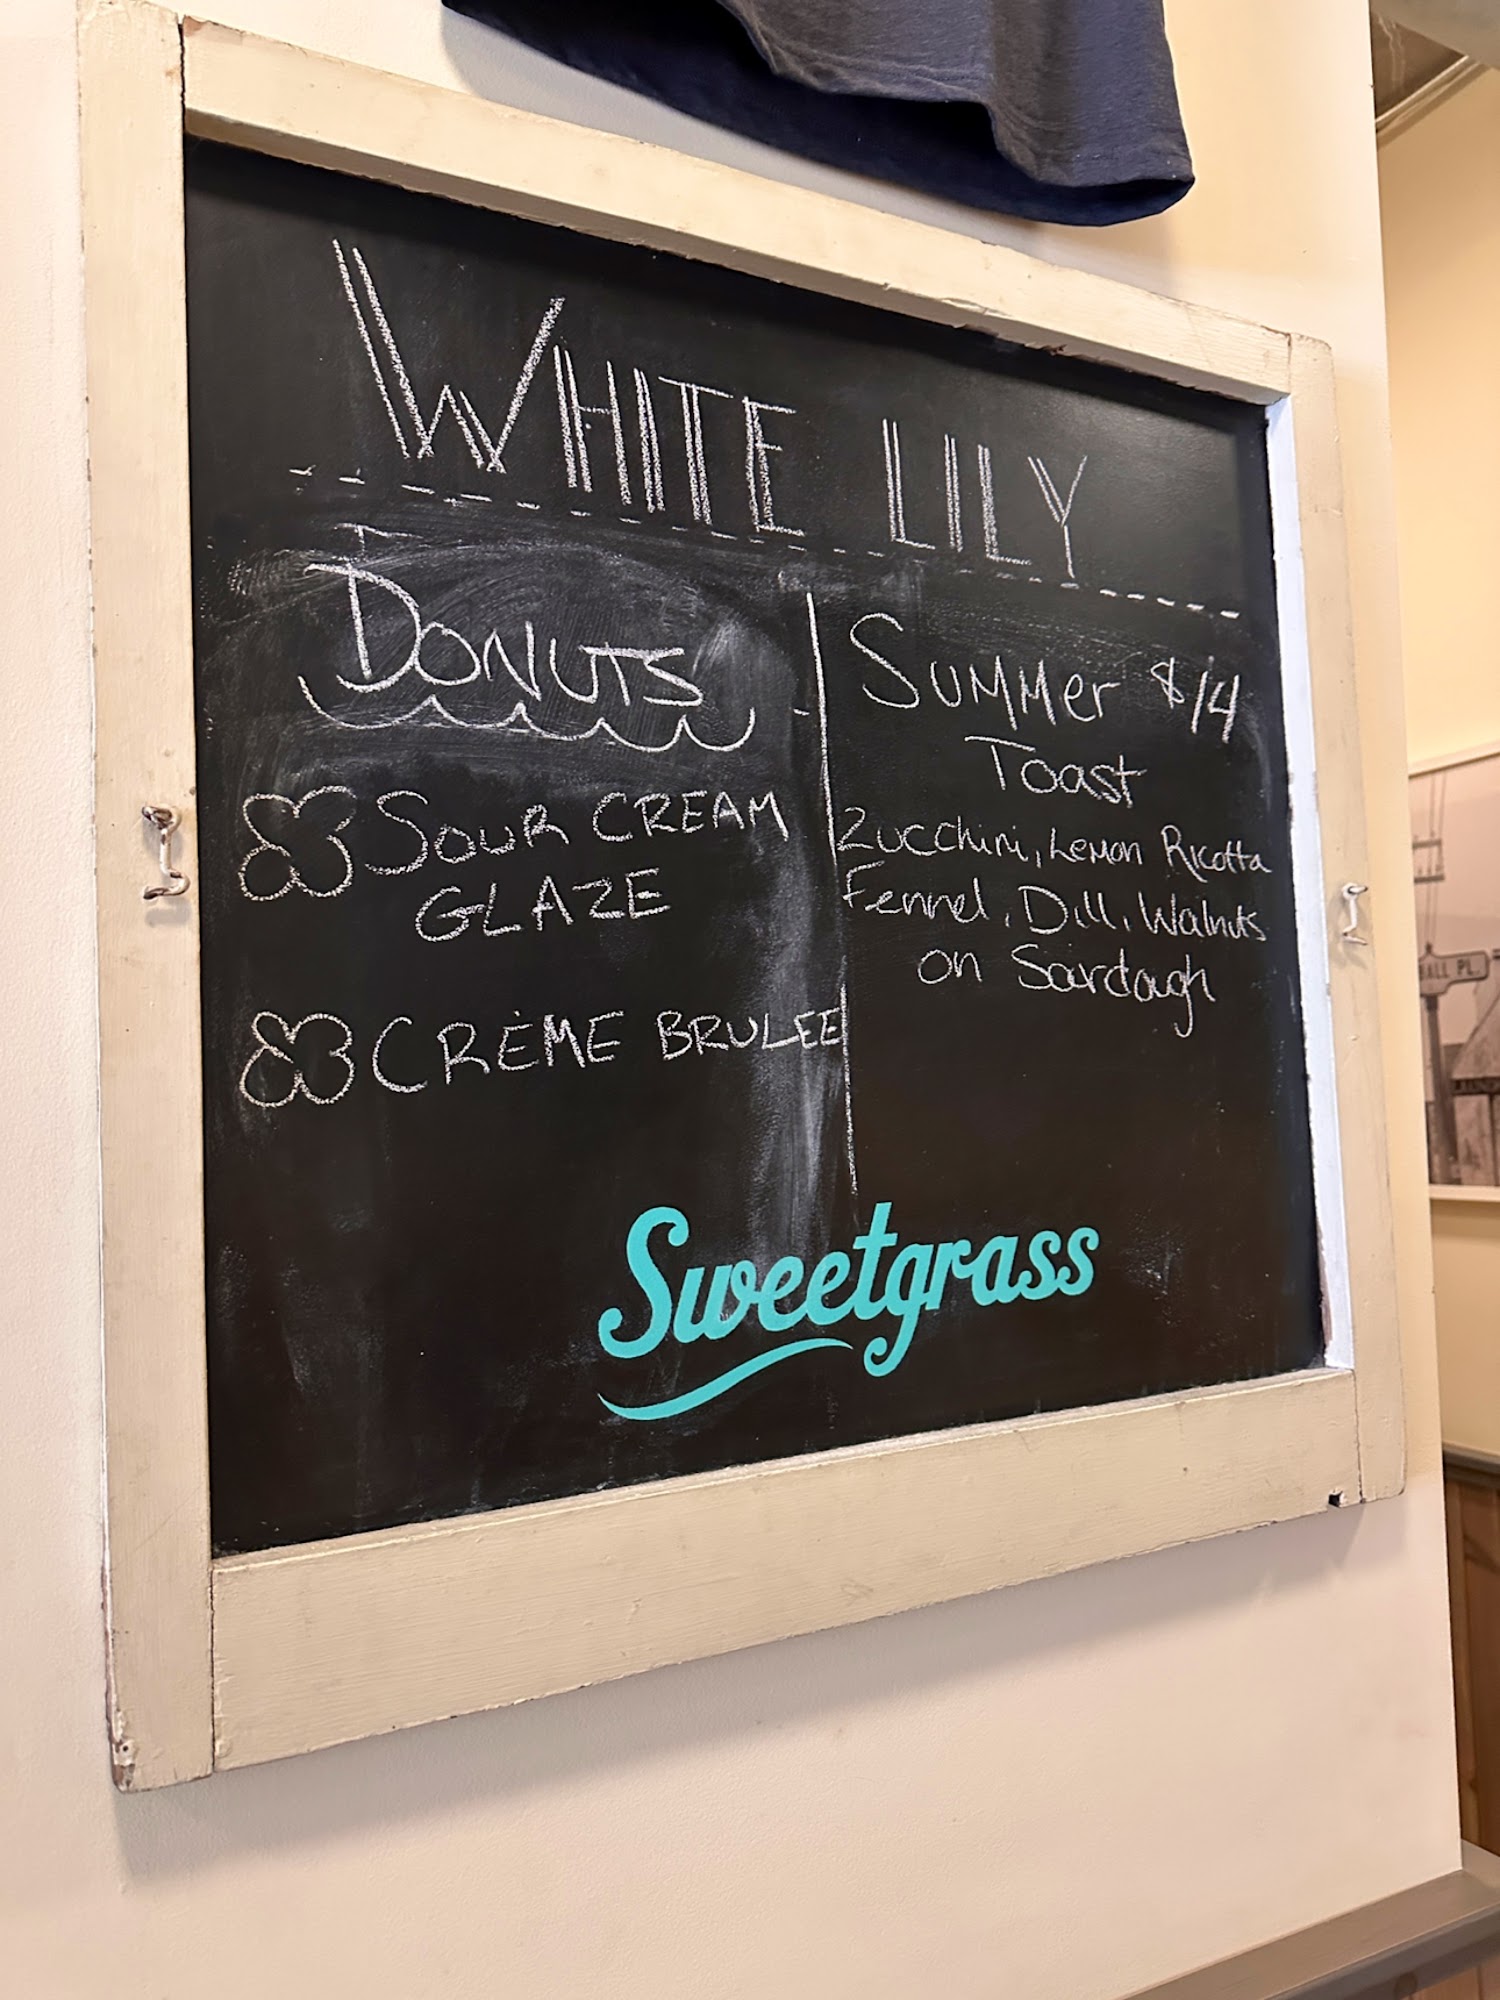 WHITE LILY
DONUTS
SOUR CREAM
GLAZE
CRÈME BRULEE
SUMMer $14
Toast
Zucchini, Lemon Ricotta
Fennel, Dill, Walnuts
on Sourdough
Sweetgrass
ALL PL.